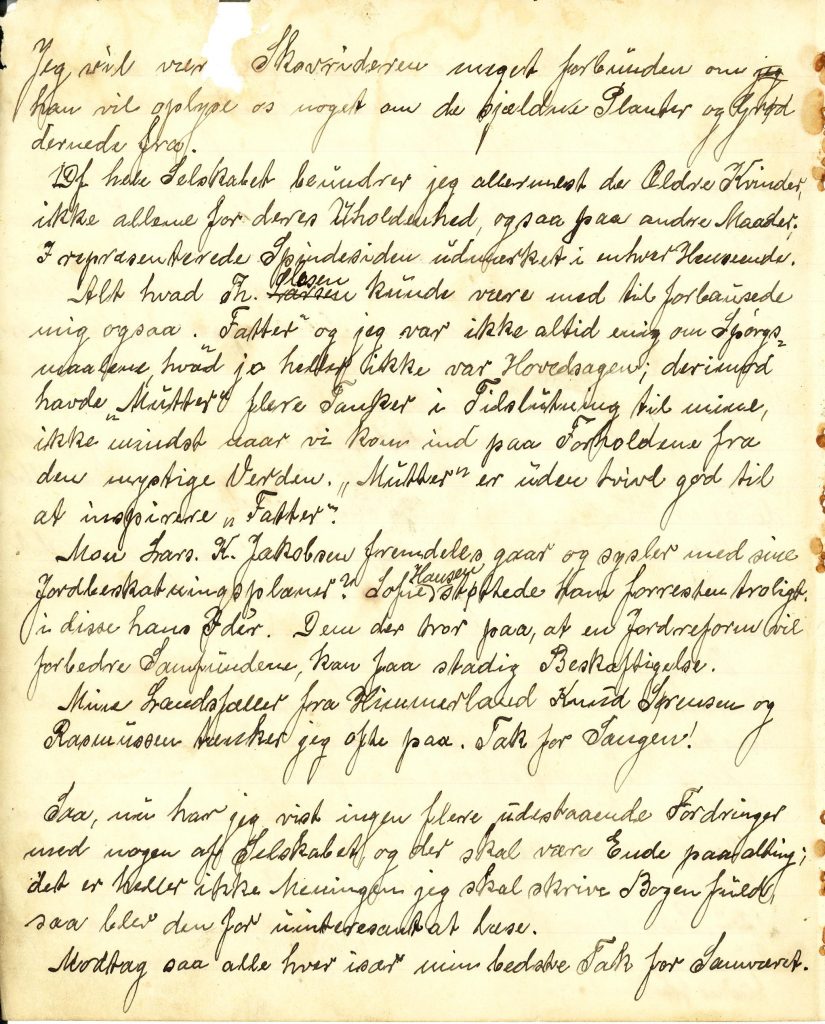 Jeg vil vær Skovrideren meget forbunden om jeg
han vil oplyse os noget om de sjældne Planter og Grød
dernede fra.
Af hele Selskabet beundrer jeg allermest de Ældre Kvinder,
ikke allene for deres Uholdenhed, ogsaa paa andre Maader;
I repræsenterede Spindesiden udmærket i enhver Henseende.
Alt hvad Th. Larsen Olesen kunde være med til forbausede
mig ogsaa. Fatter" og jeg var ikke altid enig om Spørgs=
maalene, hvad jo heller ikke var Hovedsagen; derimod
havde „Mutter" flere Tanker i Tilslutning til mine,
ikke mindst naar vi kom ind paa Forholdene fra
den mystige Verden. „Mutter" er uden tvivl god til
at inspirere „Fatter".
Mon Lars. K. Jakobsen fremdeles gaar og sysler med sine
Jordbeskatningsplaner? Sofie Hansen støttede Ham forresten troligt
i disse hans Ideer. Dem der tror paa, at en Jordreform vil
forbedre Samfundene, kan faa stadig Beskæftigelse.
Mine Landsfæller fra Himmerland Knud Sørensen og
Rasmussen tænker jeg ofte paa. Tak for Sangen!
Saa, nu har jeg vist ingen flere udestaaende Fordringer
med nogen af Selskabet og der skal være Ende paa alting;
det er heller ikke Meningen jeg skal skrive Bogen fuld,
saa blev den for uinteresant at læse.
Modtag saa alle hver især min bedste Tak for Samværet.